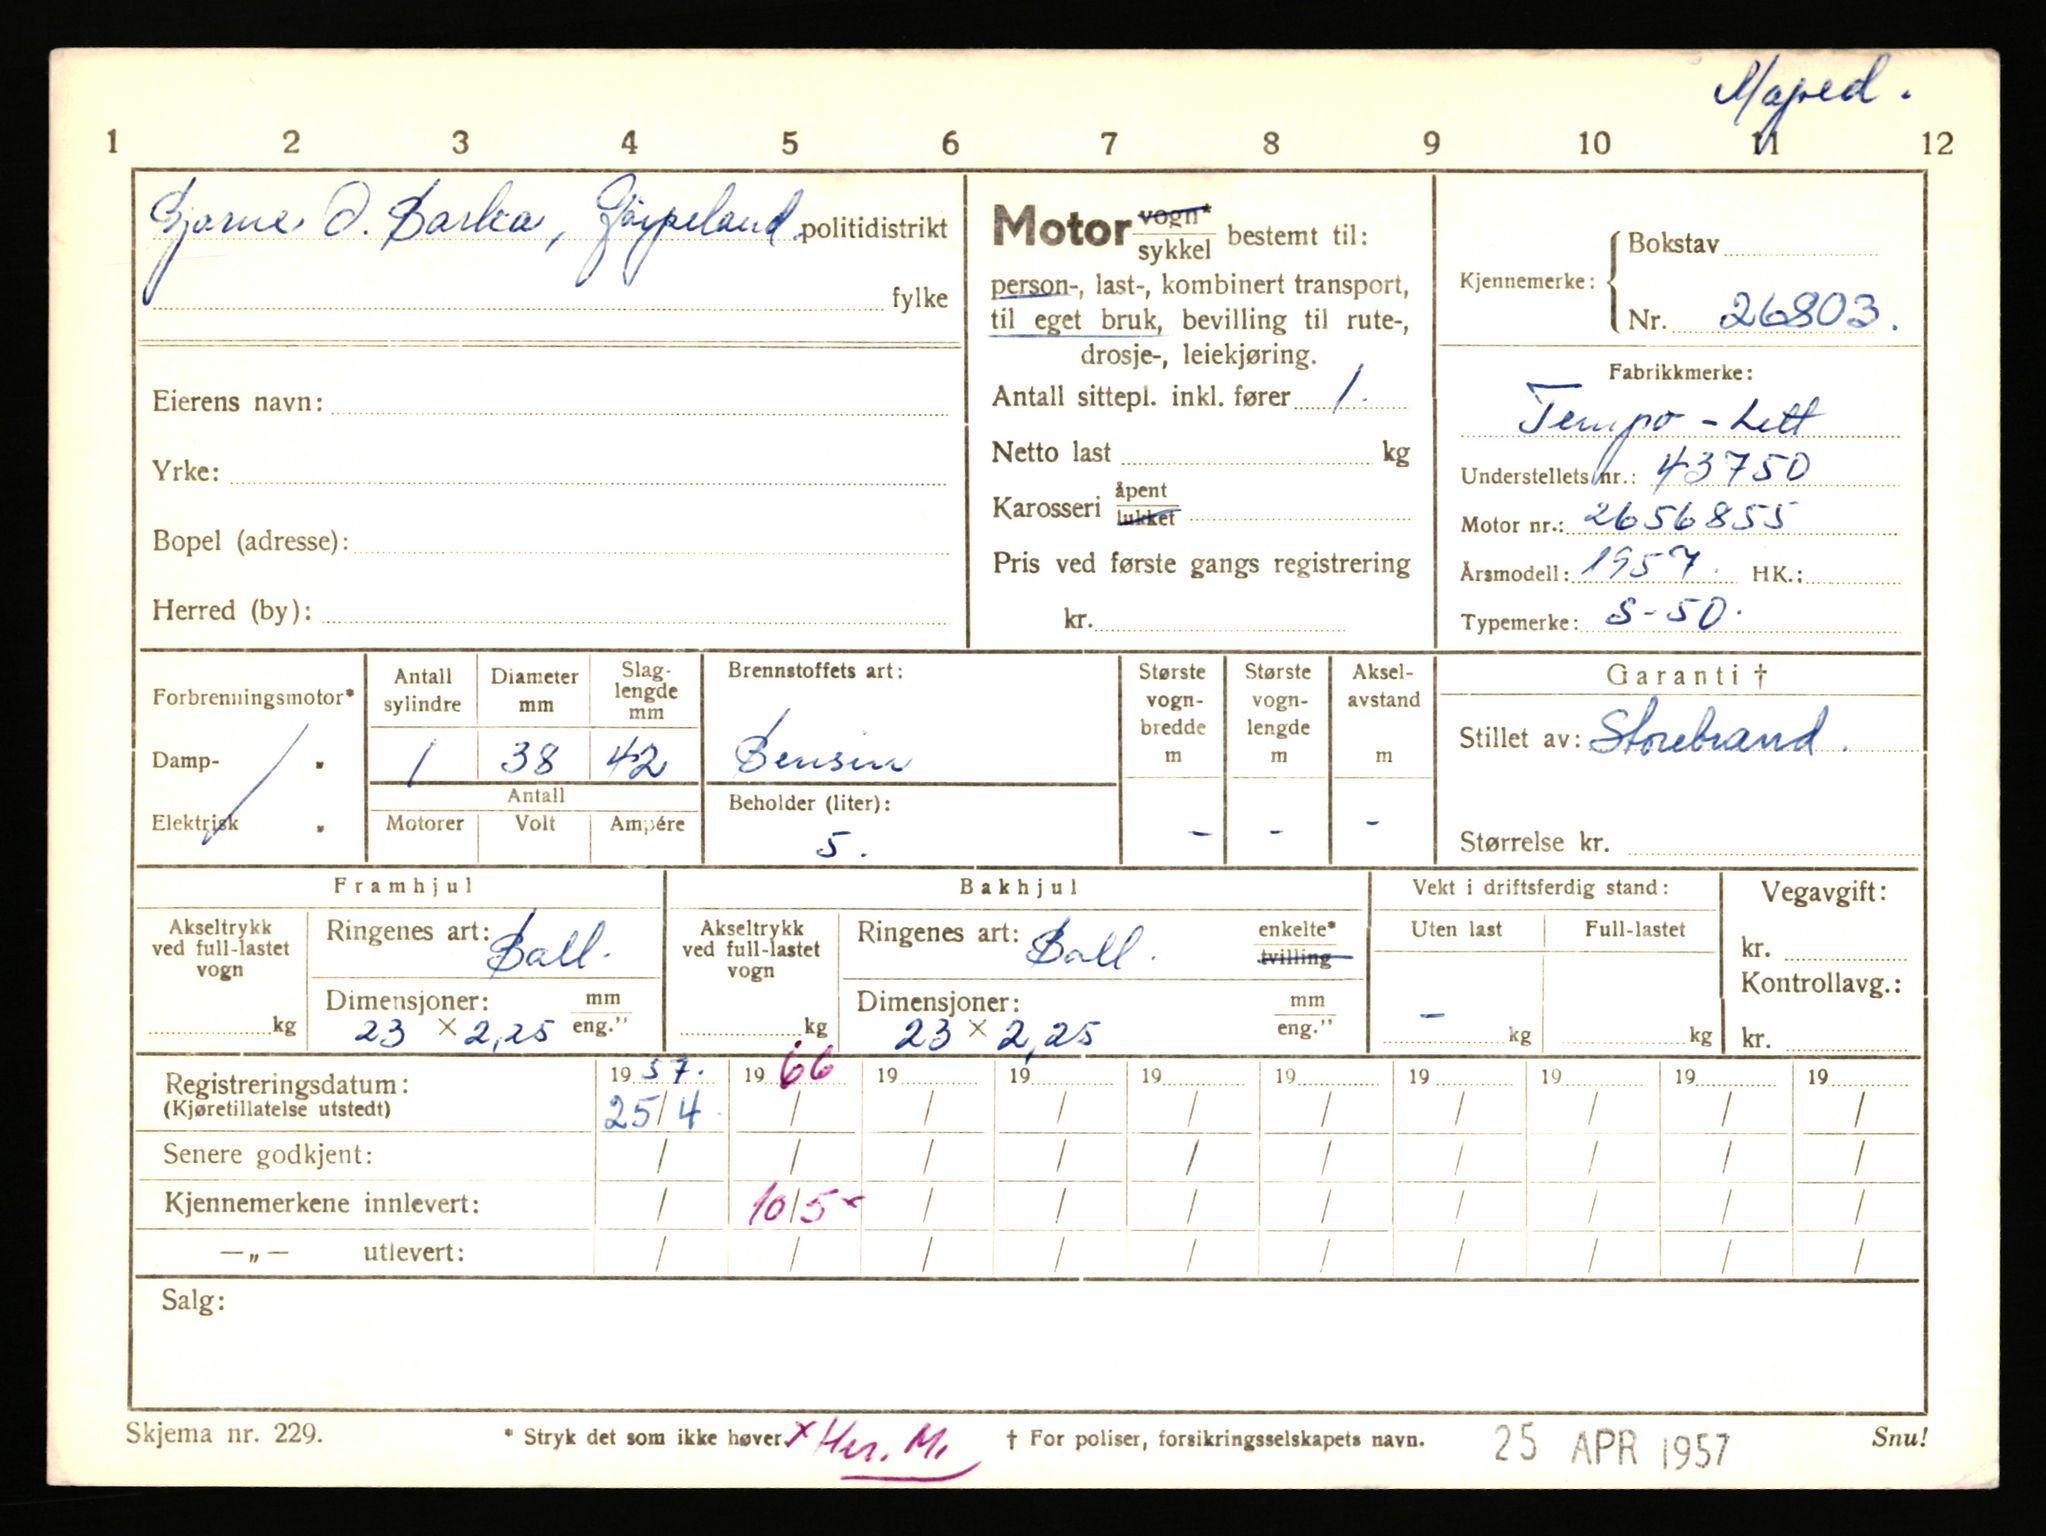 Moped.
1 2 3 4 5 6 7 8 9 10 11 12
Bjarne O. Barka, Jørpeland. politidistrikt
fylke
Eierens navn:
Yrke:
Bopel (adresse):
Herred (by):
Motor vogn* / sykkel bestemt til:
person-, last-, kombinert transport,
til eget bruk, bevilling til rute-,
drosje-, leiekjøring.
Antall sittepl. inkl. fører 1.
Netto last kg
Karosseri åpent / lukket
Pris ved første gangs registrering
kr.
Kjennemerke: Bokstav
Nr. 26803.
Fabrikkmerke:
Tempo - Lett
Understellets nr.: 43750
Motor nr.: 2656855
Årsmodell: 1957. HK.:
Typemerke: S-50.
Forbrenningsmotor*
Damp- „
Elektrisk „
Antall sylindre
1
Diameter mm
38
Slag-lengde mm
42
Antall
Motorer Volt Ampére
Brennstoffets art:
Bensin
Beholder (liter):
5.
Største vogn-bredde m
-
Største vogn-lengde m
-
Aksel-avstand m
-
Garanti †
Stillet av: Storebrand.
Størrelse kr.
Framhjul
Akseltrykk
ved full-lastet
vogn
kg
Ringenes art: Ball.
Dimensjoner: mm
23 × 2,25 eng."
Bakhjul
Akseltrykk
ved full-lastet
vogn
kg
Ringenes art: Ball. enkelte*
tvilling
Dimensjoner: mm
23 × 2,25 eng."
Vekt i driftsferdig stand:
Uten last Full-lastet
- kg kg
Vegavgift:
kr.
Kontrollavg.:
kr.
Registreringsdatum: 19 57. 19 66 19 19 19 19 19 19 19 19
(Kjøretillatelse utstedt) 25/4. / / / / / / / / /
Senere godkjent: / / / / / / / / / /
Kjennemerkene innlevert: / 10/5 / / / / / / / /
—„— utlevert: / / / / / / / / / /
Salg:
Skjema nr. 229. * Stryk det som ikke høver. † For poliser, forsikringsselskapets navn. 25 APR 1957 Snu!